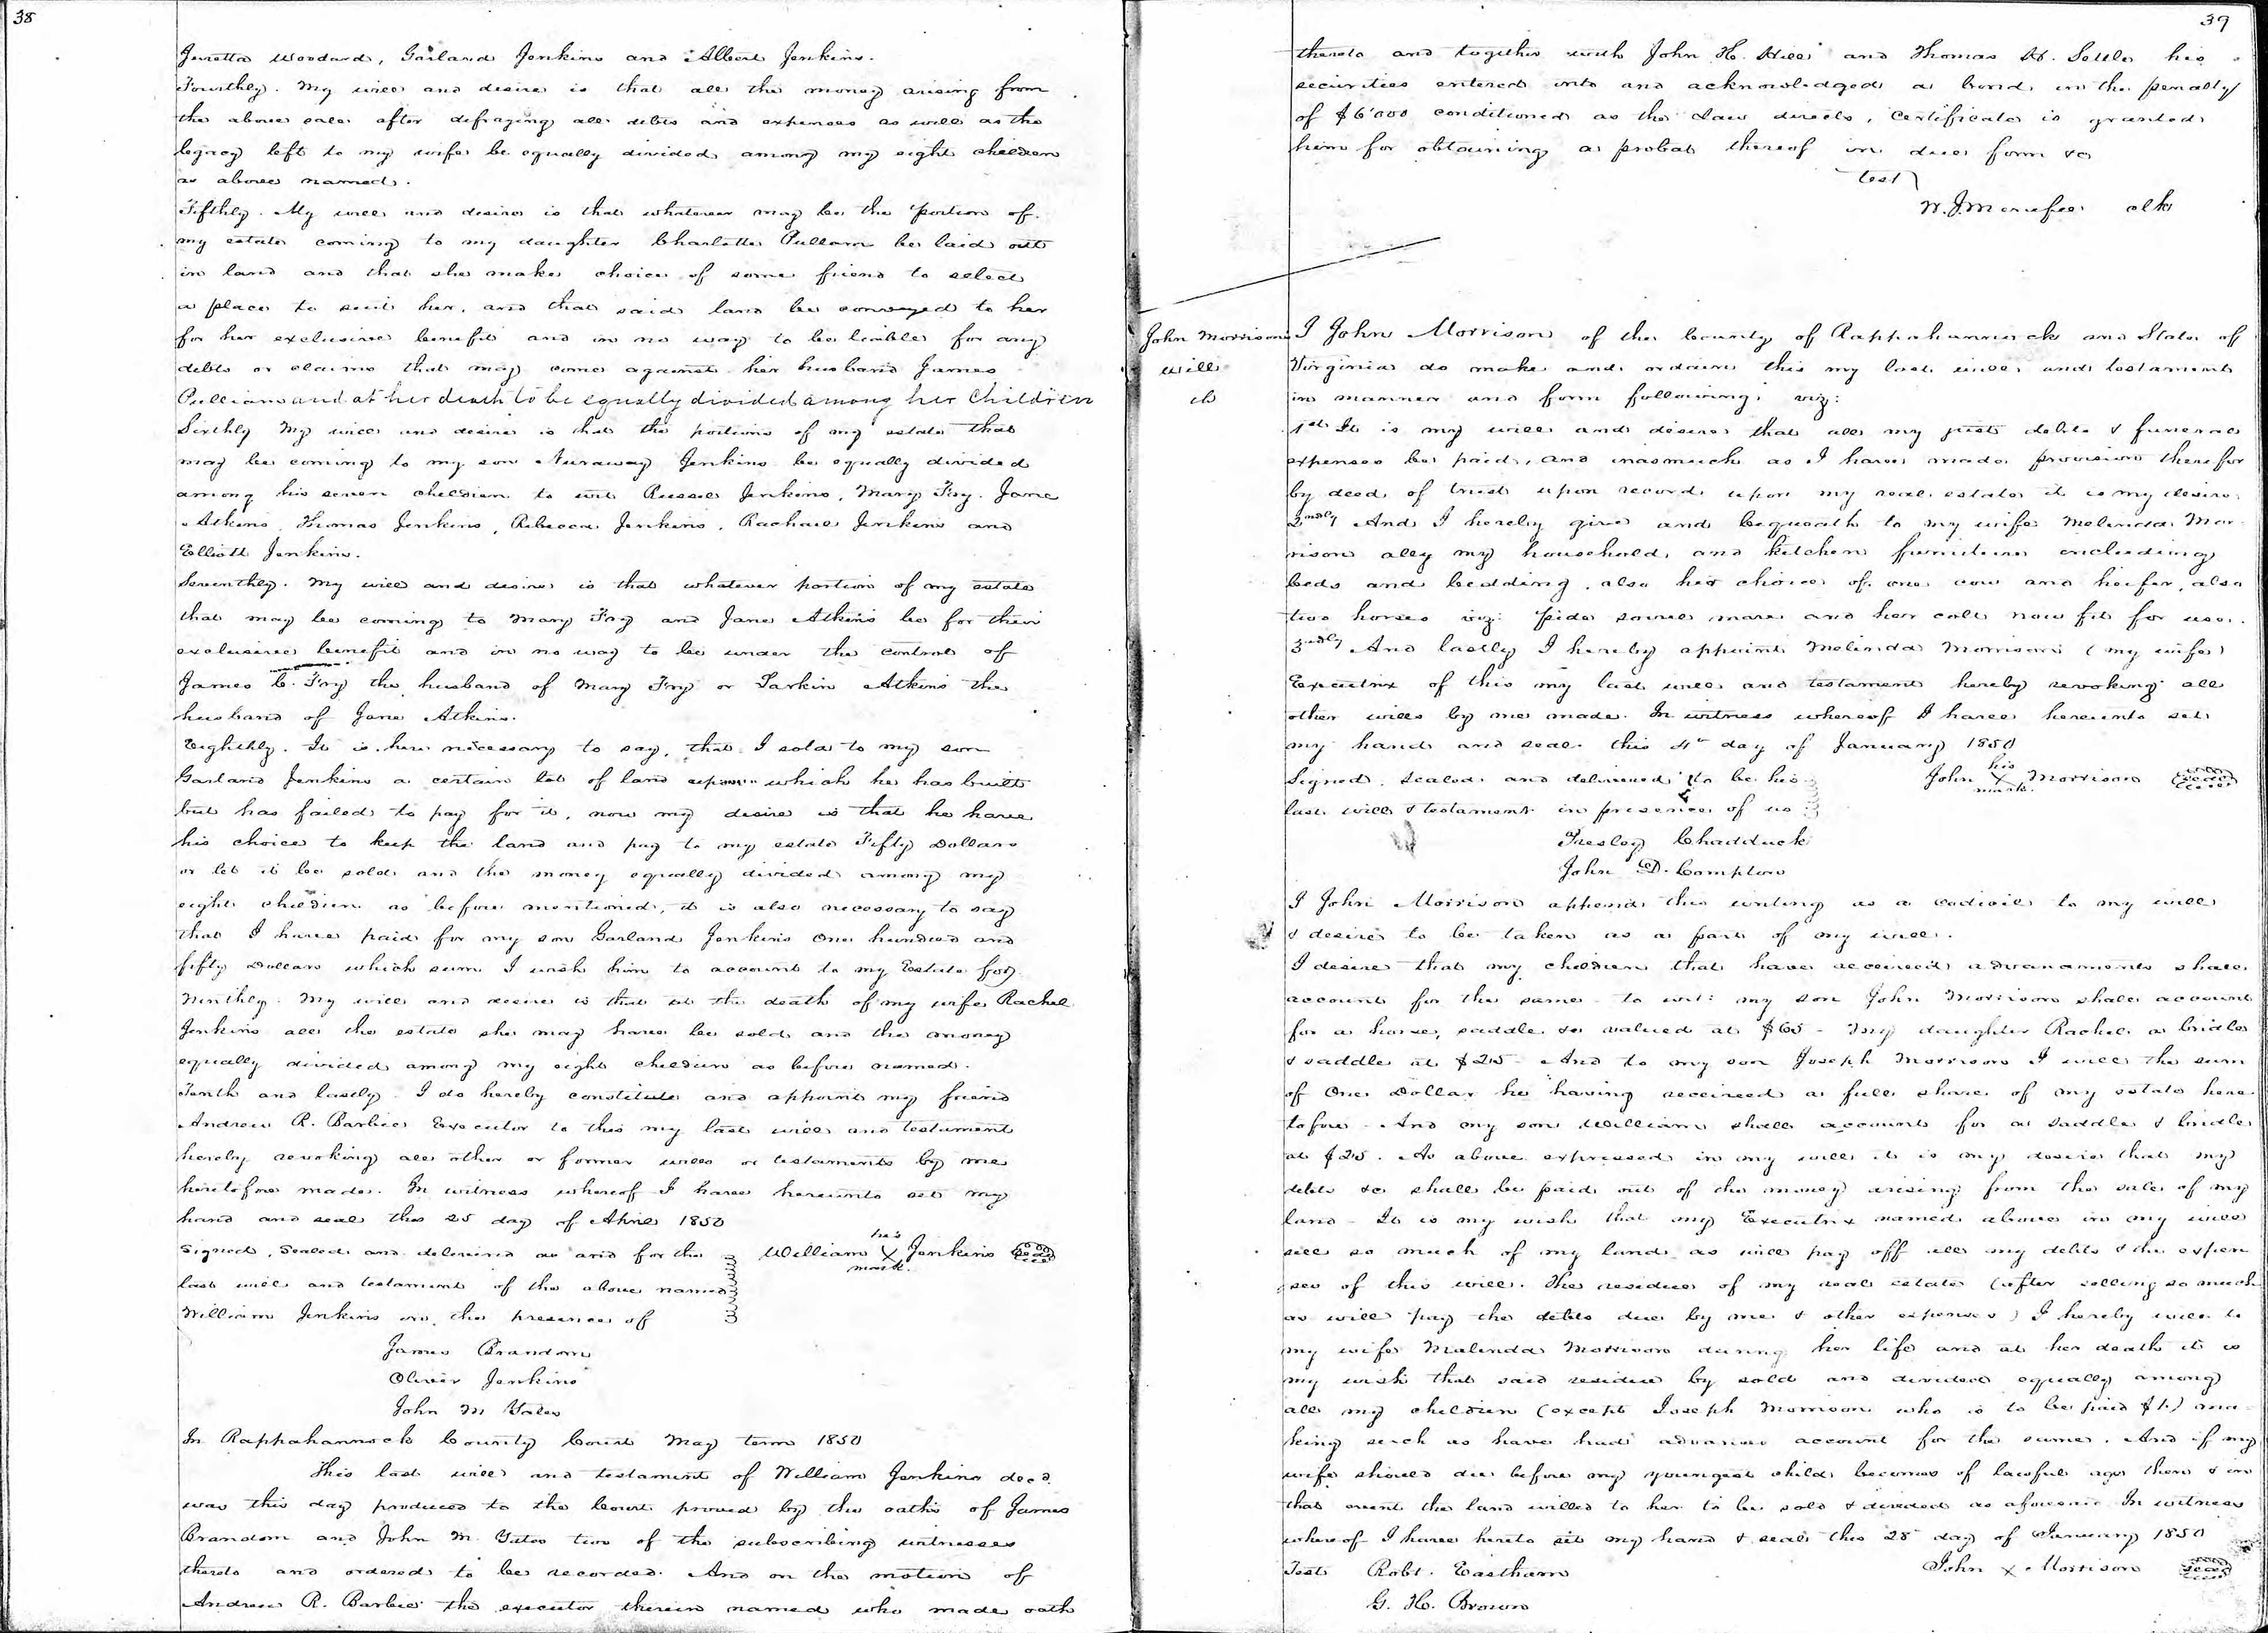 38
Juretta Woodard, Garland Jenkins and Albert Jenkins.
Fourthly. My will and desire is that all the money arising from
the above sale after defraying all debts and expenses as well as the
legacy left to my wife be equally divided among my eight children
as above named.
Fifthly. My will and desire is that whatever may be the portion of
my estate coming to my daughter Charlotte Pulliam be laid out
in land and that she make choice of some friend to select
a place to suit her, and that said land be conveyed to her
for her exclusive benefit and in no way to be liable for any
debts or claims that may come against her husband James
Pulliam and at her death to be equally divided among her Children
Sixthly My will and desire is that the portion of my estate that
may be coming to my son Jenkins be equally divided
among his seven children to wit Russel Jenkins, Mary Fry, Jane
Atkins, Thomas Jenkins, Rebecca Jenkins, Rachael Jenkins and
Elliott Jenkins.
Seventhly. My will and desire is that whatever portion of my estate
that may be coming to Mary Fry and Jane Atkins be for their
exclusive benefit and in no way to be under the control of
James C. Fry the husband of Mary Fry or Larkin Atkins the
husband of Jane Atkins.
Eighthly. It is here necessary to say, that I sold to my son
Garland Jenkins a certain lot of land upon which he has built
but has failed to pay for it, now my desire is that he have
his choice to keep the land and pay to my estate Fifty Dollars
or let it be sold and the money equally divided among my
eight children as before mentioned, it is also necessary to say
that I have paid for my son Garland Jenkins One hundred and
fifty Dollars which sum I wish him to account to my Estate for.
Ninthly. My will and desire is that at the death of my wife Rachel
Jenkins all the estate she may have be sold and the money
equally divided among my eight children as before named.
Tenth and lastly. I do hereby constitute and appoint my friend
Andrew R. Barbee Executor to this my last will and testament
hereby revoking all other or former wills or testaments by me
heretofore made. In witness whereof I have hereunto set my
hand and seal this 25 day of April 1850
Signed, Sealed and delivered as and for the
last will and testament of the above named
William Jenkins in the presence of
his
William X Jenkins Seal
mark.
James Brandom
Oliver Jenkins
John M Yates
In Rappahannock County Court May term 1850
This last will and testament of William Jenkins decd.
was this day produced to the Court proved by the oaths of James
Brandom and John M. Yates two of the subscribing witnesses
thereto and ordered to be recorded. And on the motion of
Andrew R. Barbee the executor therein named who made oath
39
thereto and together with John H. and Thomas H. Settle his
securities entered into and acknowledged a bond in the penalty
of $6000 conditioned as the law directs, Certificate is granted
him for obtaining a probat thereof in due form &c
test
W. J. Menefee clk
John Morrisons
will
I John Morrison of the County of Rappahannock and State of
Virginia do make and ordain this my last will and testament
in manner and form following, viz:
1st It is my will and desire that all my just debts & funeral
expenses be paid, and inasmuch as I have made provision therefor
by deed of trust upon record upon my real estate it is my desire.
2ndly And I hereby give and bequeath to my wife Melinda Mor
rison ally my household and kitchen furniture including
beds and bedding, also her choice of one cow and heifer, also
two horses viz: sorrel mare and her colt now fit for use.
3rdly And lastly I hereby appoint Melinda Morrison (my wife)
Executrix of this my last will and testament hereby revoking all
other wills by me made. In witness whereof I have hereunto set
my hand and seal this 4th day of January 1850
Signed, Sealed and delivered to be his
last will & testament in presence of us
his
John X Morrison Seal
mark.
Presley Chadduck
John D. Compton
I John Morrison append this writing as a codicil to my will
& desire to be taken as a part of my will.
I desire that my children that have received advancements shall
account for the same to wit: my son John Morrison shall account
for a horse, saddle &c valued at $65 - My daughter Rachel a bridle
& saddle at $25 - And to my son Joseph Morrison I will the sum
of One Dollar he having received a full share of my estate here
tofore - And my son William shall account for a saddle & bridle
at $25. As above expressed in my will it is my desire that my
debts &c shall be paid out of the money arising from the sale of my
land - It is my wish that my Executrix named above in my will
sell so much of my land as will pay off all my debts & the expen
ses of this will. The residue of my real estate (after selling so much
as will pay the debts due by me & other expenses) I hereby will to
my wife Malinda Morrison during her life and at her death it is
my wish that said residue by sold and divided equally among
all my children (except Joseph Morrison who is to be paid $1.) ma
king such as have had advances account for the same. And if my
wife should die before my youngest child becomes of lawful age then & in
that event the land willed to her to be sold & divided as aforesaid In witness
whereof I have hereto set my hand & seal this 28 day of January 1850
Test Robt. Eastham
John X Morrison Seal
G. H. Brown